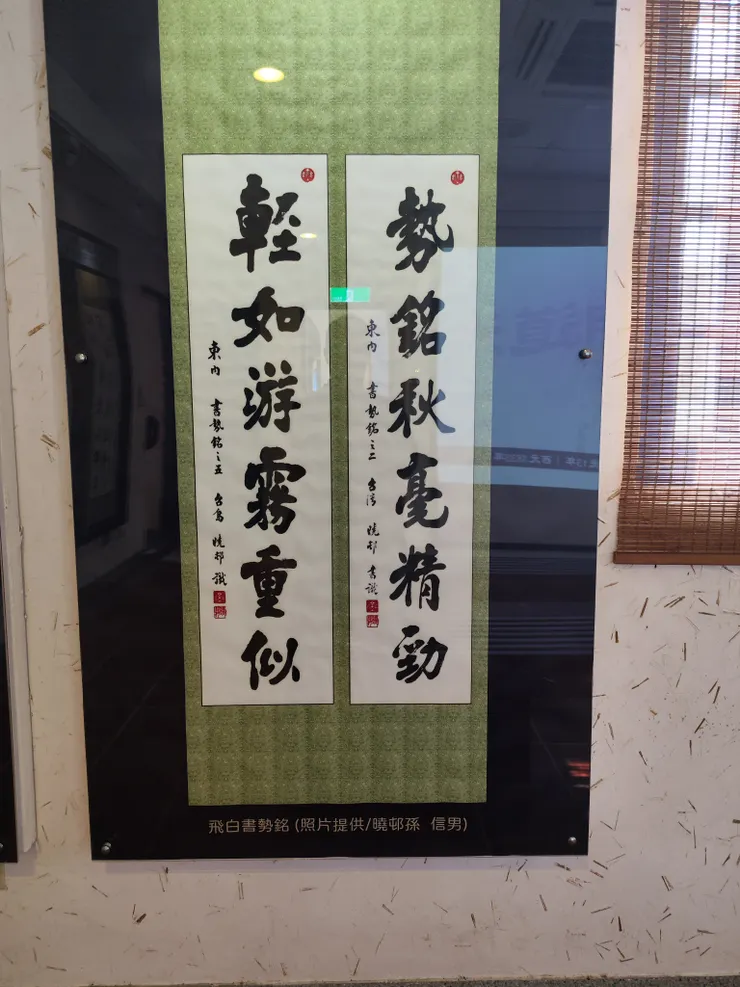 勢銘秋毫精勁
東內 書勢銘之二 台灣 曉邨 書識
輕如游霧重似
東內 書勢銘之五 台島 曉邨 識
飛白書勢銘 (照片提供/曉邨孫 信男)